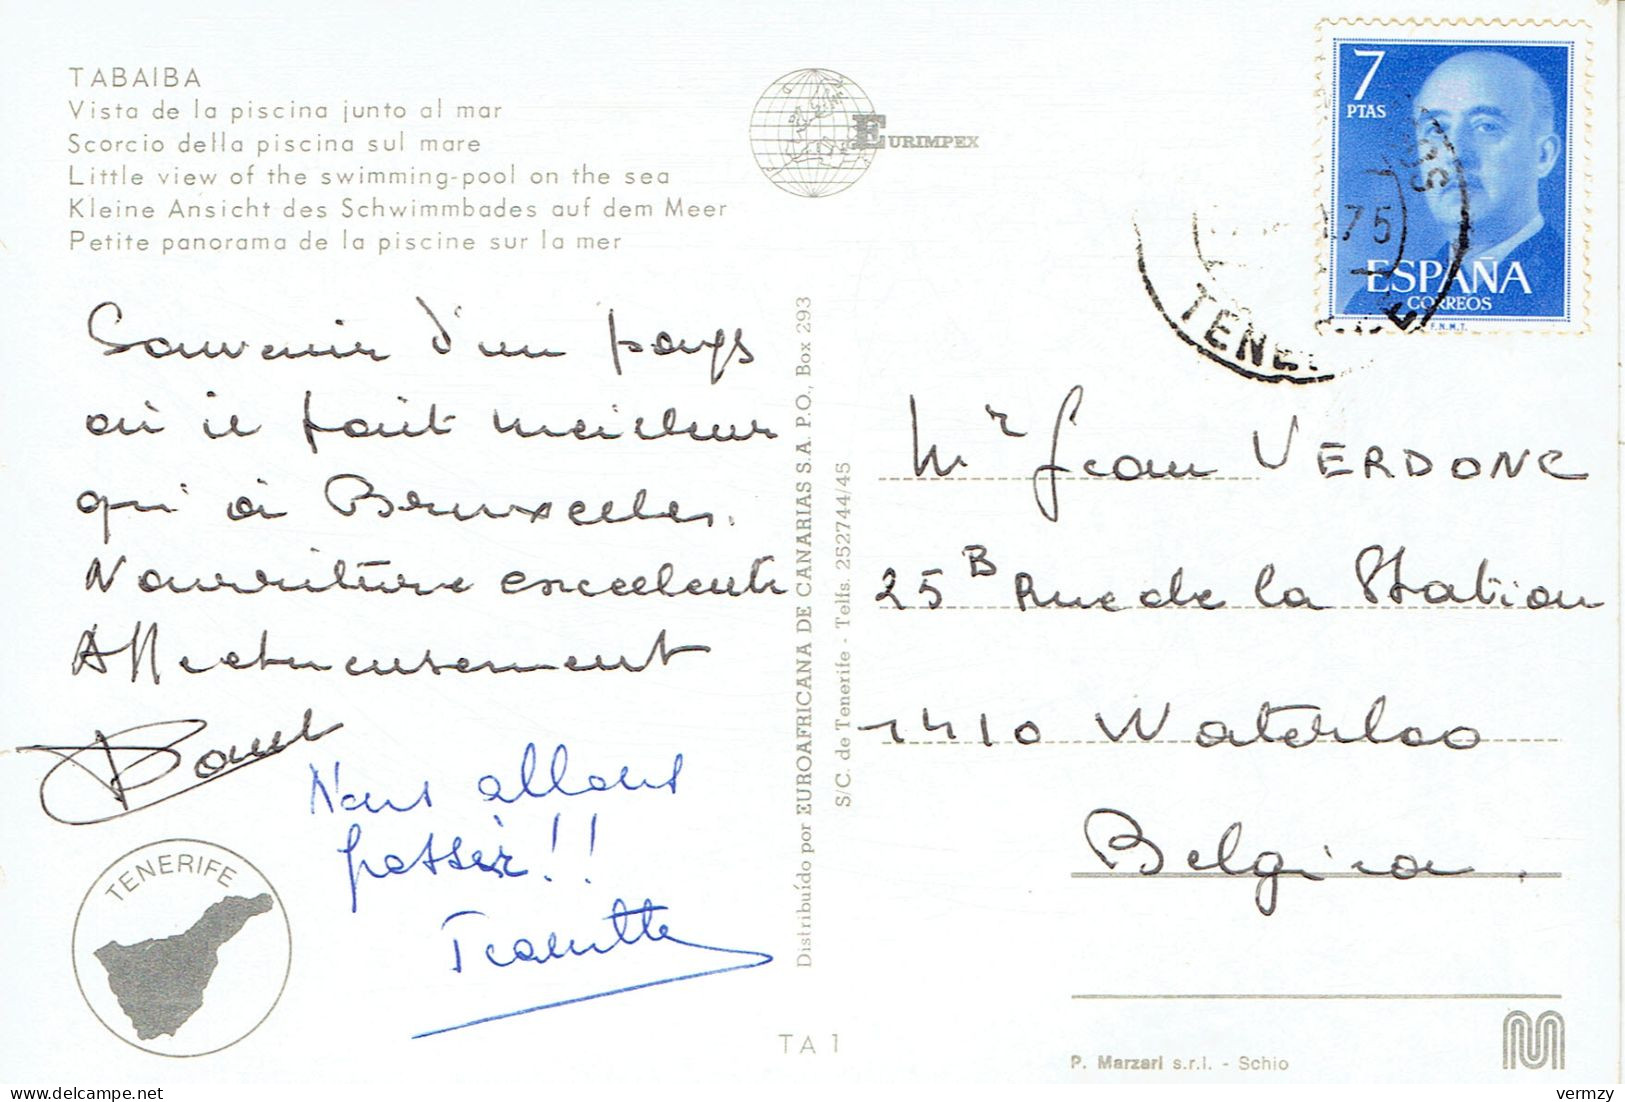 TABAIBA
Vista de la piscina junto al mar
Scorcio della piscina sul mare
Little view of the swimming-pool on the sea
Kleine Ansicht des Schwimmbades auf dem Meer
Petite panorama de la piscine sur la mer
EURIMPEX
7
PTAS
ESPAÑA
CORREOS
F.N.M.T.
75
TENE
Souvenir d'un pays
où il fait meilleur
qui à Bruxelles.
Nourriture excellente
Affectueusement
Nous allons
passer!!
TENERIFE
Distribuído por EUROAFRICANA DE CANARIAS S.A. P.O. Box 293
S/C. de Tenerife - Telfs. 252744/45
Mr Jean VERDONC
25B Rue de la Station
1410 Waterloo
Belgica.
TA 1
P. Marzari s.r.l. - Schio
vermzy